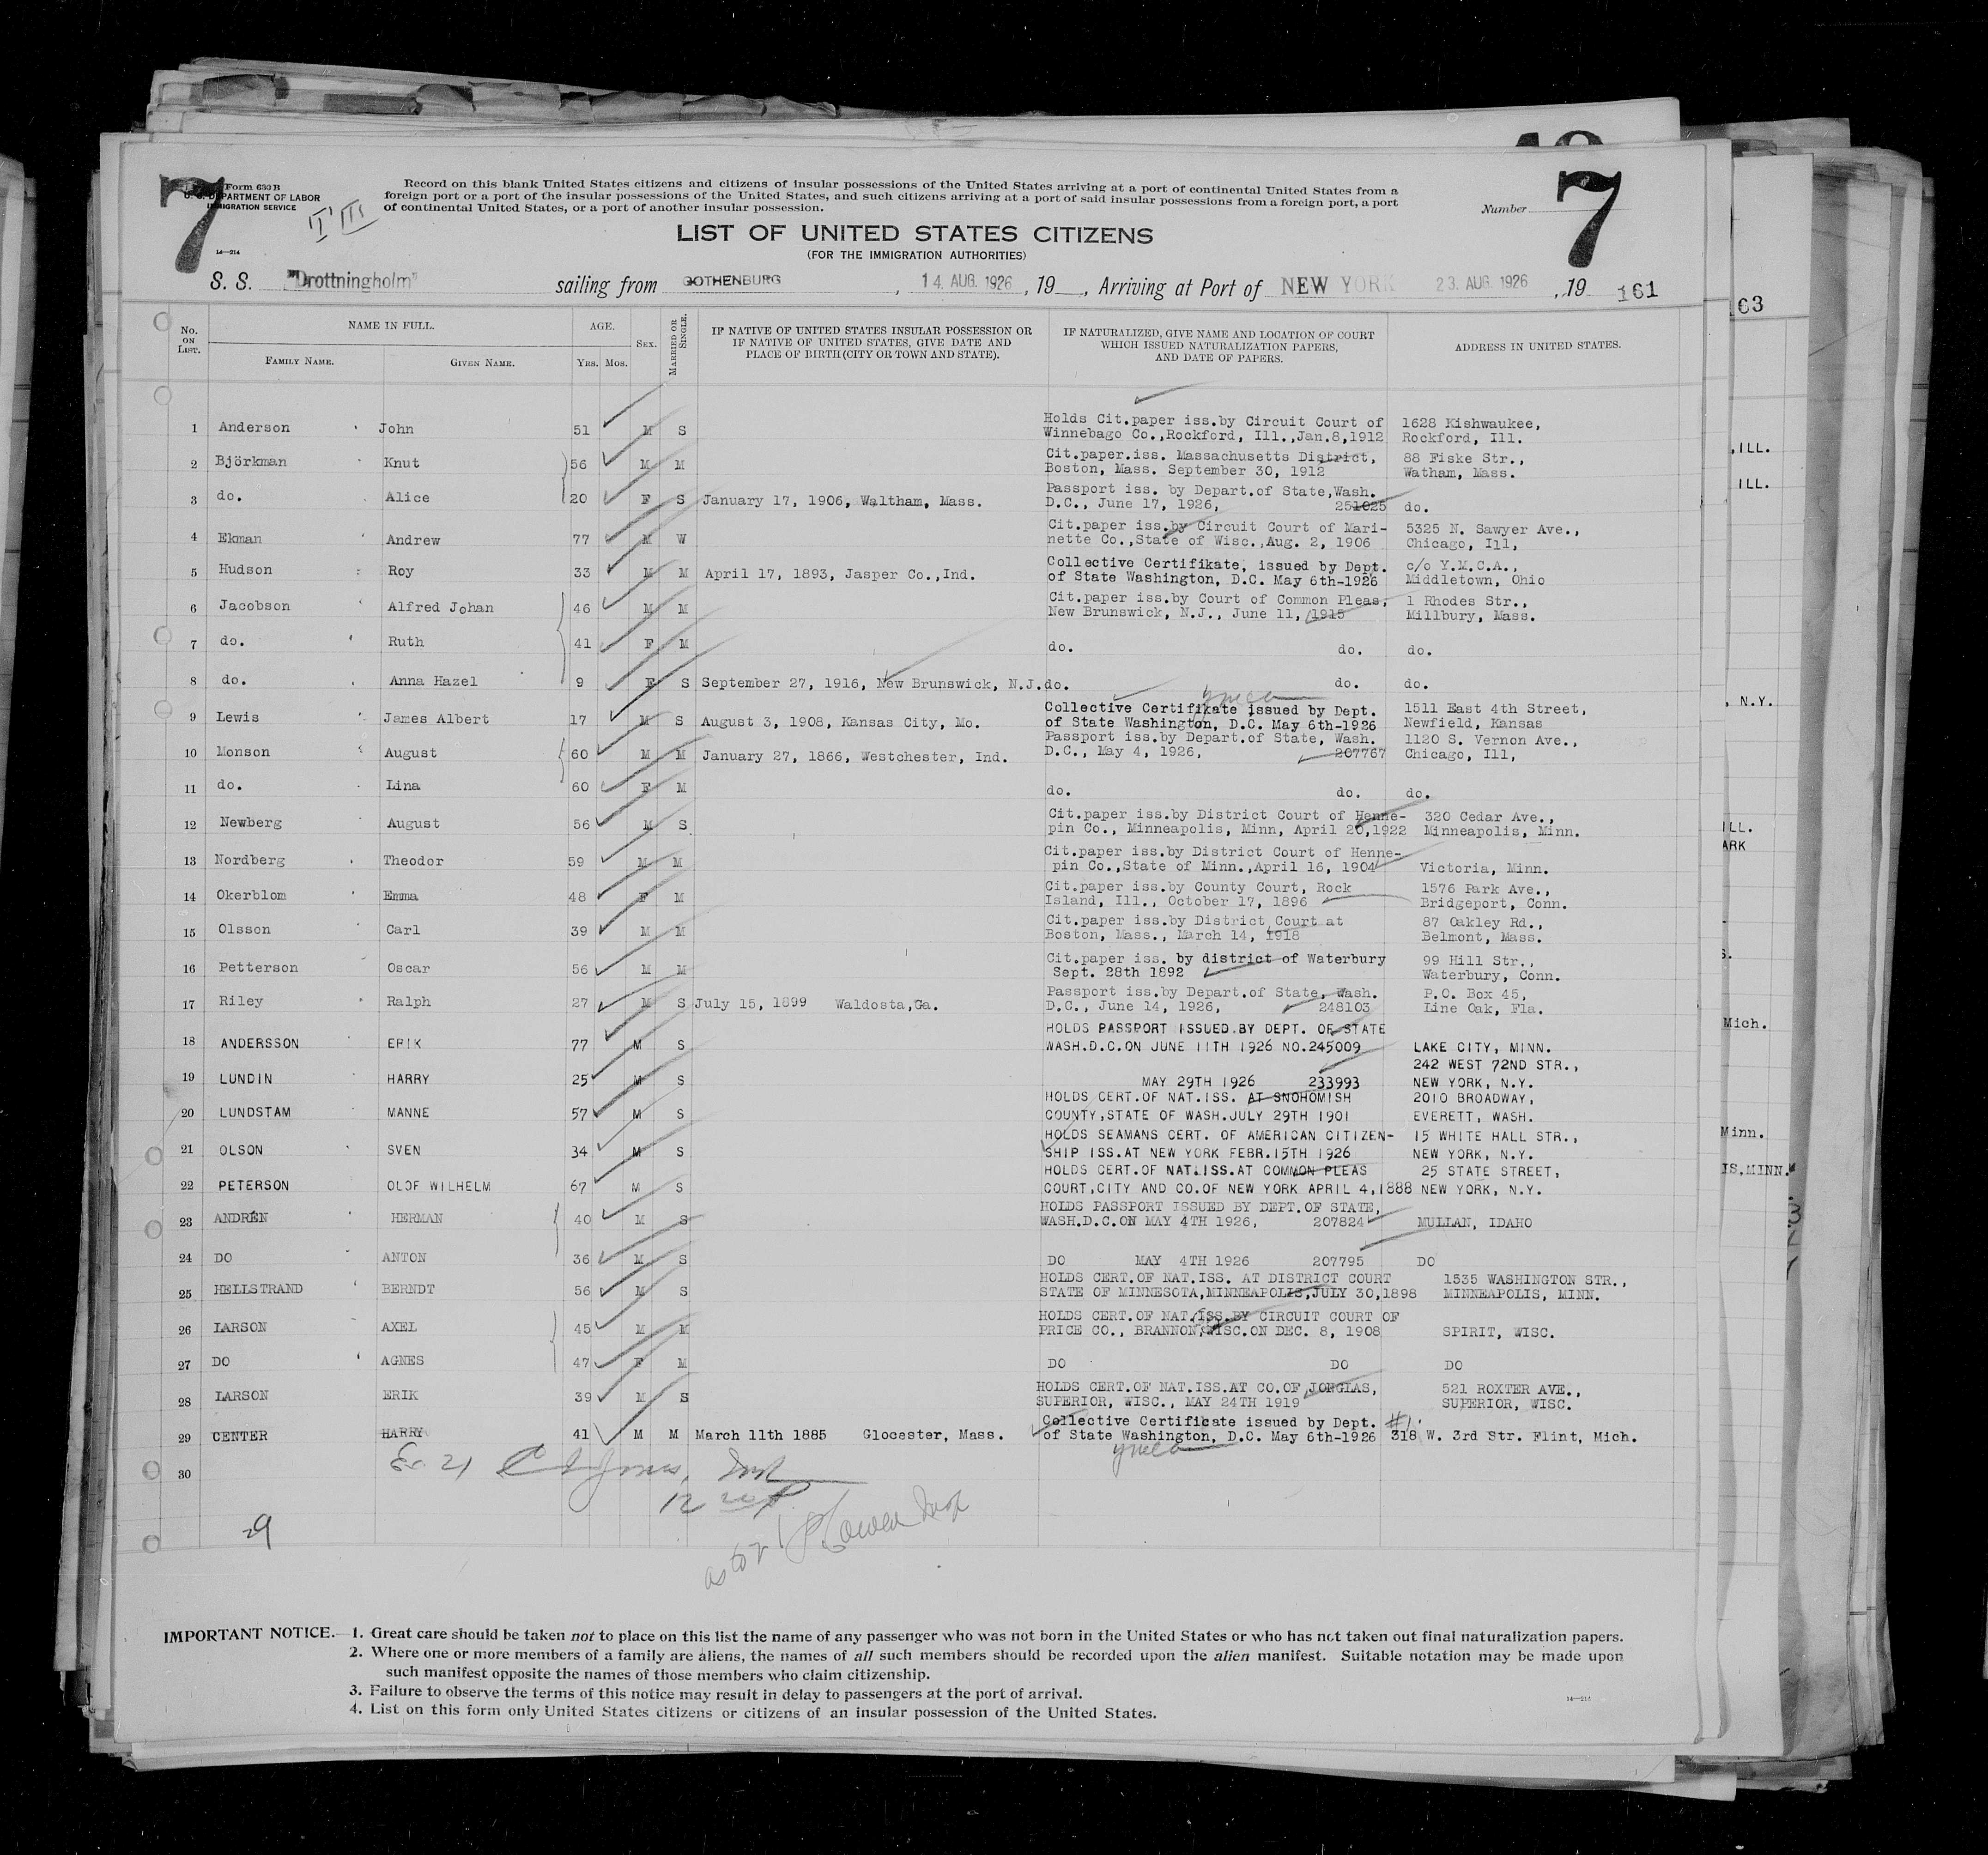 7
Form 630 B
U. S. DEPARTMENT OF LABOR
IMMIGRATION SERVICE
I III
14—214
Record on this blank United States citizens and citizens of insular possessions of the United States arriving at a port of continental United States from a
foreign port or a port of the insular possessions of the United States, and such citizens arriving at a port of said insular possessions from a foreign port, a port
of continental United States, or a port of another insular possession.
Number
7
LIST OF UNITED STATES CITIZENS
(FOR THE IMMIGRATION AUTHORITIES)
S. S. "Drottningholm" sailing from GOTHENBURG, 14 AUG. 1926, 19__, Arriving at Port of NEW YORK 23. AUG. 1926, 19 161
No. ON LIST. NAME IN FULL. AGE. SEX. MARRIED OR SINGLE. IF NATIVE OF UNITED STATES INSULAR POSSESSION OR IF NATIVE OF UNITED STATES, GIVE DATE AND PLACE OF BIRTH (CITY OR TOWN AND STATE). IF NATURALIZED, GIVE NAME AND LOCATION OF COURT WHICH ISSUED NATURALIZATION PAPERS, AND DATE OF PAPERS. ADDRESS IN UNITED STATES.
FAMILY NAME. GIVEN NAME. YRS. MOS.
1 Anderson John 51 M S Holds Cit.paper iss.by Circuit Court of 1628 Kishwaukee,
Winnebago Co.,Rockford, Ill.,Jan.8,1912 Rockford, Ill.
2 Björkman Knut 56 M M Cit.paper.iss. Massachusetts District, 88 Fiske Str.,
Boston, Mass. September 30, 1912 Watham, Mass.
3 do. Alice 20 F S January 17, 1906, Waltham, Mass. Passport iss. by Depart.of State,Wash.
D.C., June 17, 1926, 251025 do.
4 Ekman Andrew 77 M W Cit.paper iss.by Circuit Court of Mari- 5325 N. Sawyer Ave.,
nette Co.,State of Wisc.,Aug. 2, 1906 Chicago, Ill,
5 Hudson Roy 33 M M April 17, 1893, Jasper Co.,Ind. Collective Certifikate, issued by Dept. c/o Y.M.C.A.,
of State Washington, D.C. May 6th-1926 Middletown, Ohio
6 Jacobson Alfred Johan 46 M M Cit.paper iss.by Court of Common Pleas, 1 Rhodes Str.,
New Brunswick, N.J., June 11, 1915 Millbury, Mass.
7 do. Ruth 41 F M do. do. do.
8 do. Anna Hazel 9 F S September 27, 1916, New Brunswick, N.J. do. do. do.
ymca
9 Lewis James Albert 17 M S August 3, 1908, Kansas City, Mo. Collective Certifikate issued by Dept. 1511 East 4th Street,
of State Washington, D.C. May 6th-1926 Newfield, Kansas
10 Monson August 60 M M January 27, 1866, Westchester, Ind. Passport iss.by Depart.of State, Wash. 1120 S. Vernon Ave.,
D.C., May 4, 1926, 207767 Chicago, Ill,
11 do. Lina 60 F M do. do. do.
12 Newberg August 56 M S Cit.paper iss.by District Court of Henne- 320 Cedar Ave.,
pin Co., Minneapolis, Minn, April 20,1922 Minneapolis, Minn.
13 Nordberg Theodor 59 M M Cit.paper iss.by District Court of Henne-
pin Co.,State of Minn.,April 16, 1904 Victoria, Minn.
14 Okerblom Emma 48 F M Cit.paper iss.by County Court, Rock 1576 Park Ave.,
Island, Ill., October 17, 1896 Bridgeport, Conn.
15 Olsson Carl 39 M M Cit.paper iss.by District Court at 87 Oakley Rd.,
Boston, Mass., March 14, 1918 Belmont, Mass.
16 Petterson Oscar 56 M M Cit.paper iss. by district of Waterbury 99 Hill Str.,
Sept. 28th 1892 Waterbury, Conn.
17 Riley Ralph 27 M S July 15, 1899 Waldosta,Ga. Passport iss.by Depart.of State, Wash. P.O. Box 45,
D.C., June 14, 1926, 248103 Line Oak, Fla.
18 ANDERSSON ERIK 77 M S HOLDS PASSPORT ISSUED.BY DEPT. OF STATE
WASH.D.C.ON JUNE 11TH 1926 NO.245009 LAKE CITY, MINN.
19 LUNDIN HARRY 25 M S 242 WEST 72ND STR.,
MAY 29TH 1926 233993 NEW YORK, N.Y.
20 LUNDSTAM MANNE 57 M S HOLDS CERT.OF NAT.ISS. AT SNOHOMISH 2010 BROADWAY,
COUNTY,STATE OF WASH.JULY 29TH 1901 EVERETT, WASH.
21 OLSON SVEN 34 M S HOLDS SEAMANS CERT. OF AMERICAN CITIZEN- 15 WHITE HALL STR.,
SHIP ISS.AT NEW YORK FEBR.15TH 1926 NEW YORK, N.Y.
22 PETERSON OLOF WILHELM 67 M S HOLDS CERT.OF NAT.ISS.AT COMMON PLEAS 25 STATE STREET,
COURT,CITY AND CO.OF NEW YORK APRIL 4,1888 NEW YORK, N.Y.
23 ANDRÉN HERMAN 40 M S HOLDS PASSPORT ISSUED BY DEPT.OF STATE,
WASH.D.C.ON MAY 4TH 1926, 207824 MULLAN, IDAHO
24 DO ANTON 36 M S DO MAY 4TH 1926 207795 DO
25 HELLSTRAND BERNDT 56 M S HOLDS CERT.OF NAT.ISS. AT DISTRICT COURT 1535 WASHINGTON STR.,
STATE OF MINNESOTA,MINNEAPOLIS,JULY 30,1898 MINNEAPOLIS, MINN.
26 LARSON AXEL 45 M M HOLDS CERT.OF NAT.ISS.BY CIRCUIT COURT OF
PRICE CO., BRANNON,WISC.ON DEC. 8, 1908 SPIRIT, WISC.
27 DO AGNES 47 F M DO DO DO
28 LARSON ERIK 39 M S HOLDS CERT.OF NAT.ISS.AT CO.OF JORGLAS, 521 ROXTER AVE.,
SUPERIOR, WISC., MAY 24TH 1919 SUPERIOR, WISC.
29 CENTER HARRY 41 M M March 11th 1885 Glocester, Mass. Collective Certificate issued by Dept. #1.
of State Washington, D.C. May 6th-1926 318 W. 3rd Str. Flint, Mich.
ymca
30
29
IMPORTANT NOTICE.—1. Great care should be taken not to place on this list the name of any passenger who was not born in the United States or who has not taken out final naturalization papers.
2. Where one or more members of a family are aliens, the names of all such members should be recorded upon the alien manifest. Suitable notation may be made upon
such manifest opposite the names of those members who claim citizenship.
3. Failure to observe the terms of this notice may result in delay to passengers at the port of arrival.
4. List on this form only United States citizens or citizens of an insular possession of the United States.
14—214
63
,ILL.
ILL.
, N.Y.
ILL.
ARK
S.
Mich.
Minn.
IS,MINN.